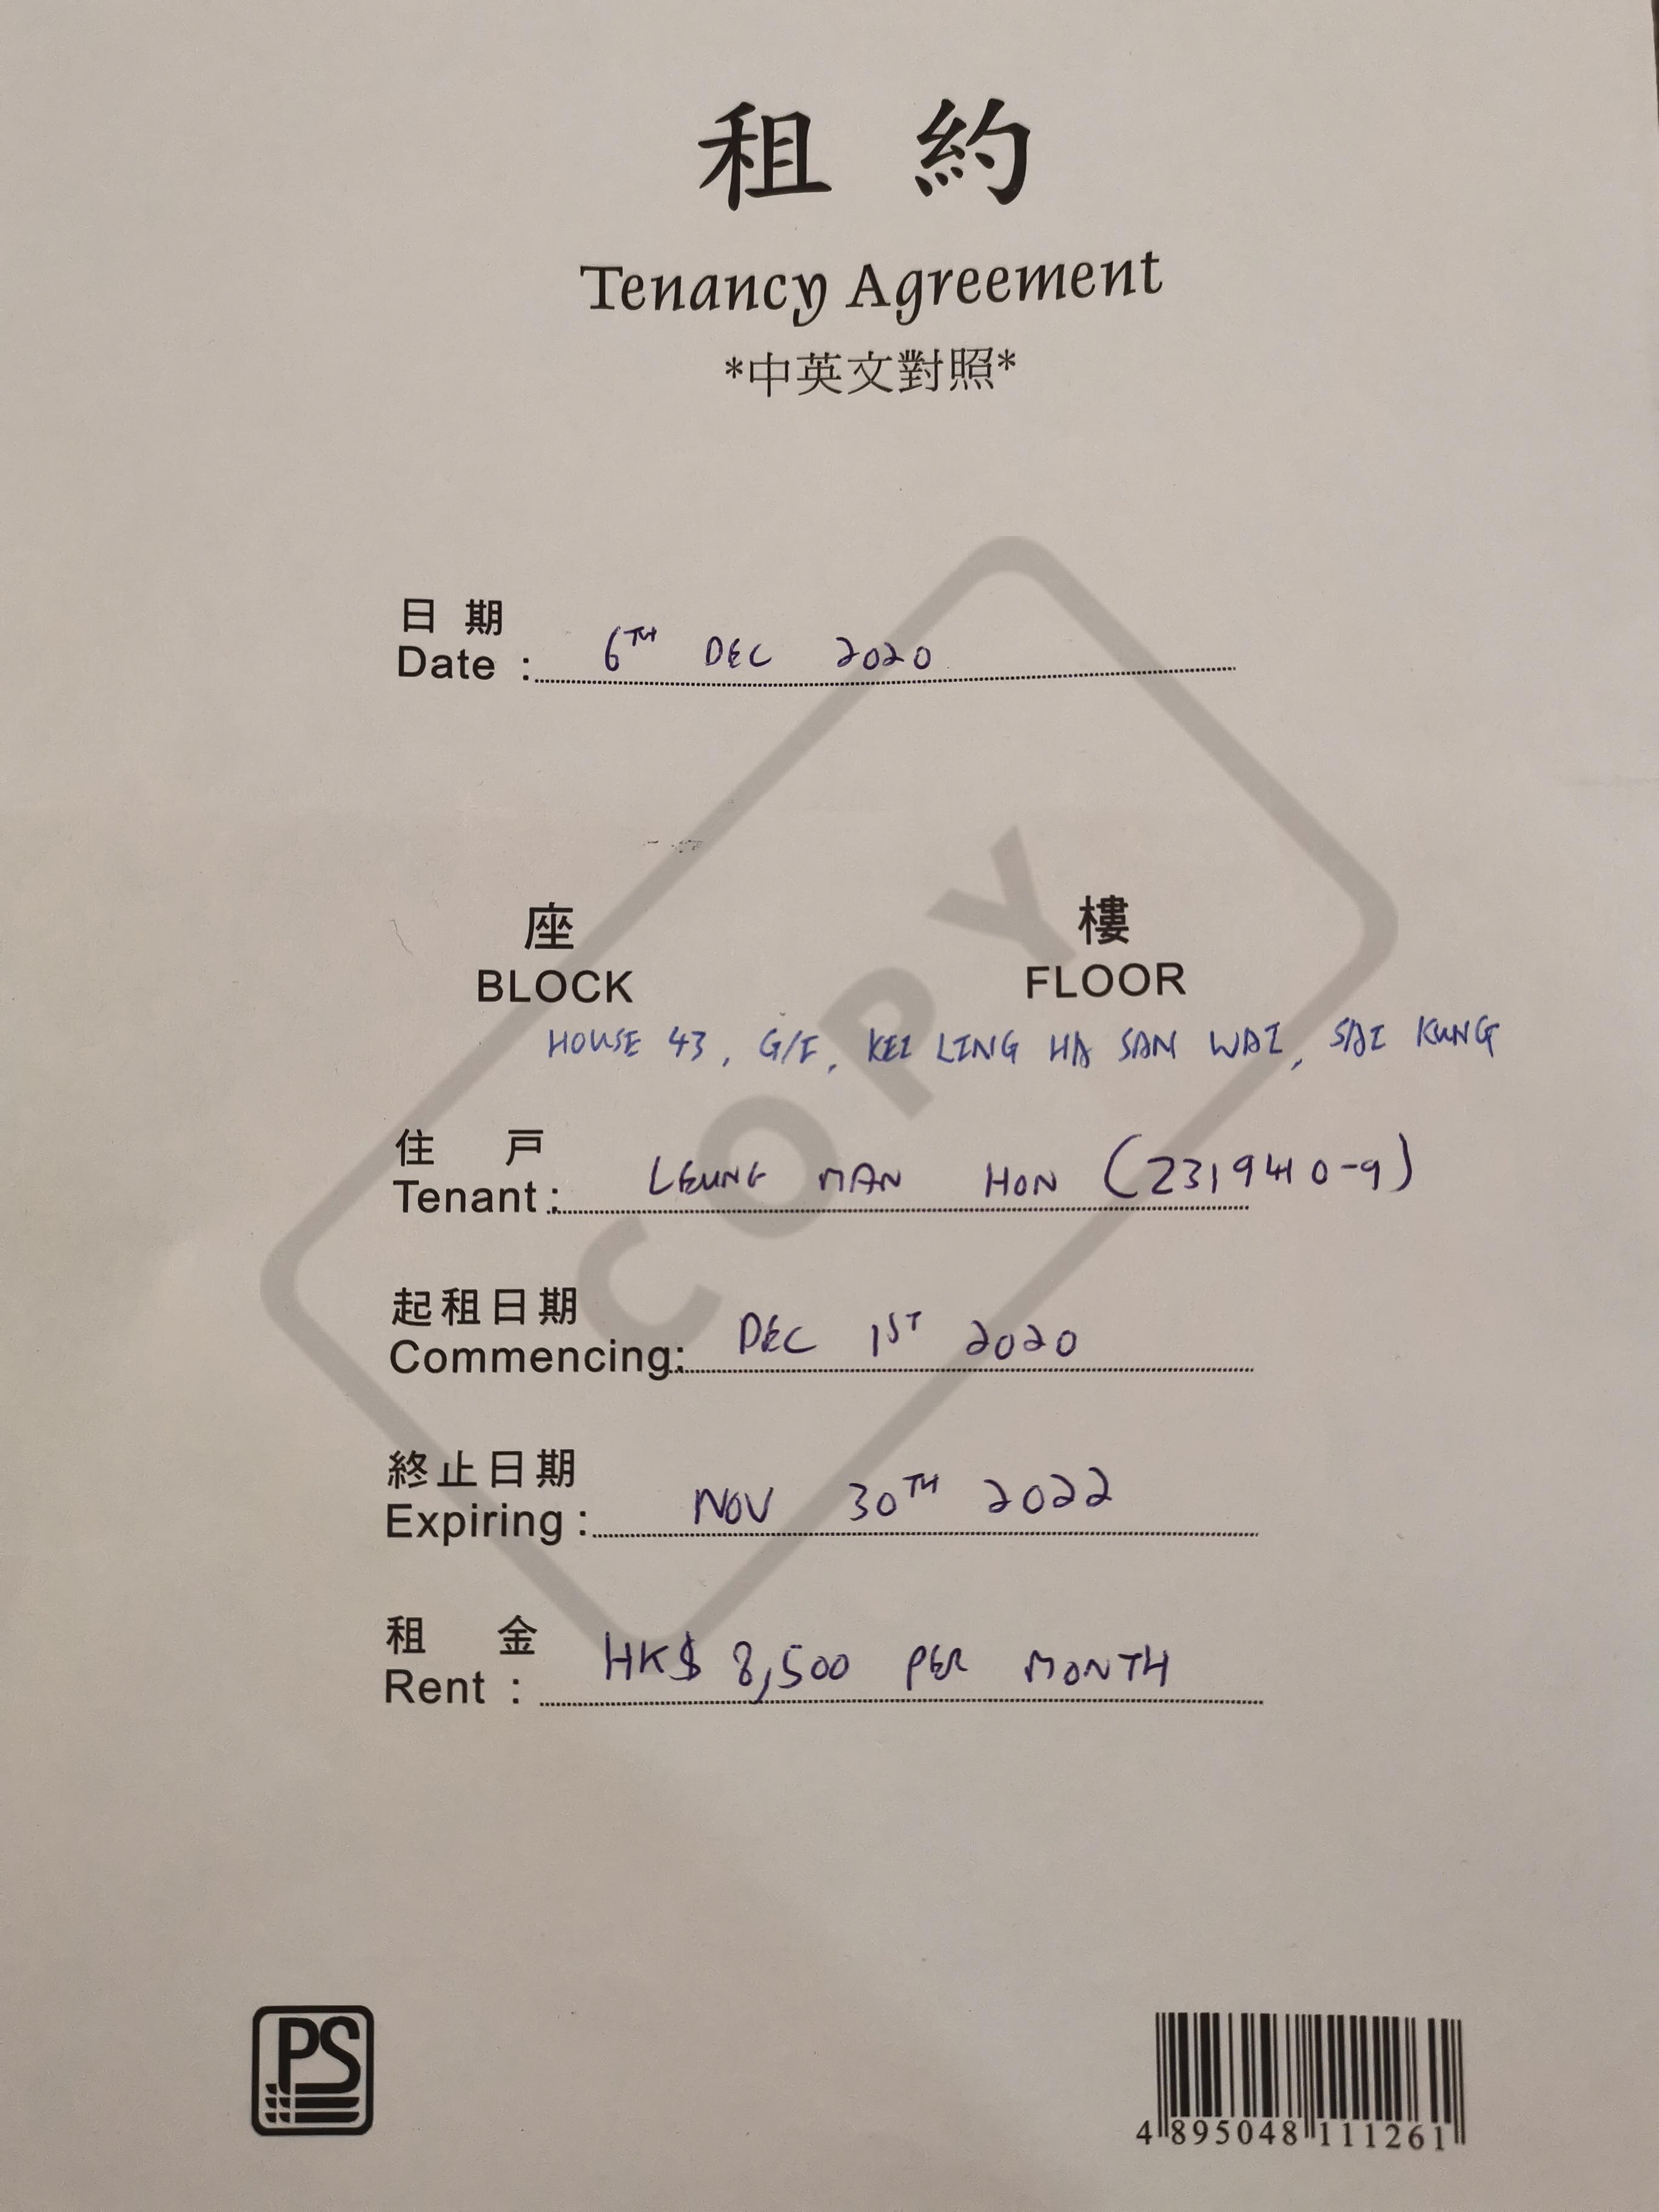 租約
Tenancy Agreement
*中英文對照*
日期
Date : 6TH DEC 2020
座 樓
BLOCK FLOOR
HOUSE 43, G/F, KEI LING HA SAN WAI, SAI KUNG
COPY
住戶
Tenant : LEUNG MAN HON (Z319410-9)
起租日期
Commencing: DEC 1ST 2020
終止日期
Expiring : NOV 30TH 2022
租金
Rent : HK$ 8,500 PER MONTH
PS
4 895048 111261